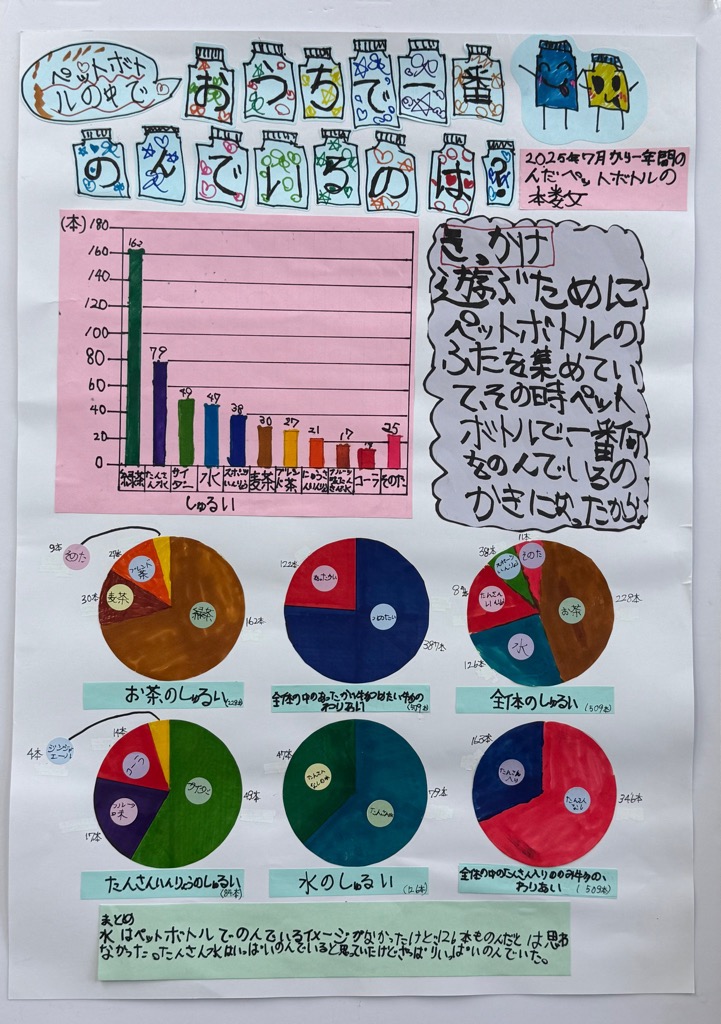 ペットボト
ルの中で
おうちで一番
のんでいるのは?
2025年7月から一年間の
んだペットボトルの
本数
(本)
180
160
140
120
100
80
60
40
20
0
162
79
49
47
38
30
27
21
17
25
緑茶
たんさん水
サイダー
水
麦茶
ブレンド茶
コーラ
そのた
しゅるい
きっかけ
遊ぶために
ペットボトルの
ふたを集めてい
て、その時ペット
ボトルで、一番何
をのんでいるの
かきになったから。
9本
そのた
27本
ブレンド茶
30本
麦茶
緑茶
162本
お茶のしゅるい
122本
あったかい
つめたい
387本
全体の中のあったかい
わりあい
38本
11本
そのた
お茶
228本
水
126本
全体のしゅるい (509本)
4本
ジンジャエール
14本
コーラ
サイダー
49本
フルーツ味
17本
たんさんいんりょうのしゅるい
47本
79本
水のしゅるい (126本)
163本
たんさん入り
たんさんなし
346本
全体の中のたんさん入り
わりあい (509本)
まとめ
水はペットボトルでのんでいるイメージがなかったけど、126本ものんだとは思わ
なかった。たんさん水はいっぱいのんでいると思っていたけど、やっぱりいっぱいのんでいた。